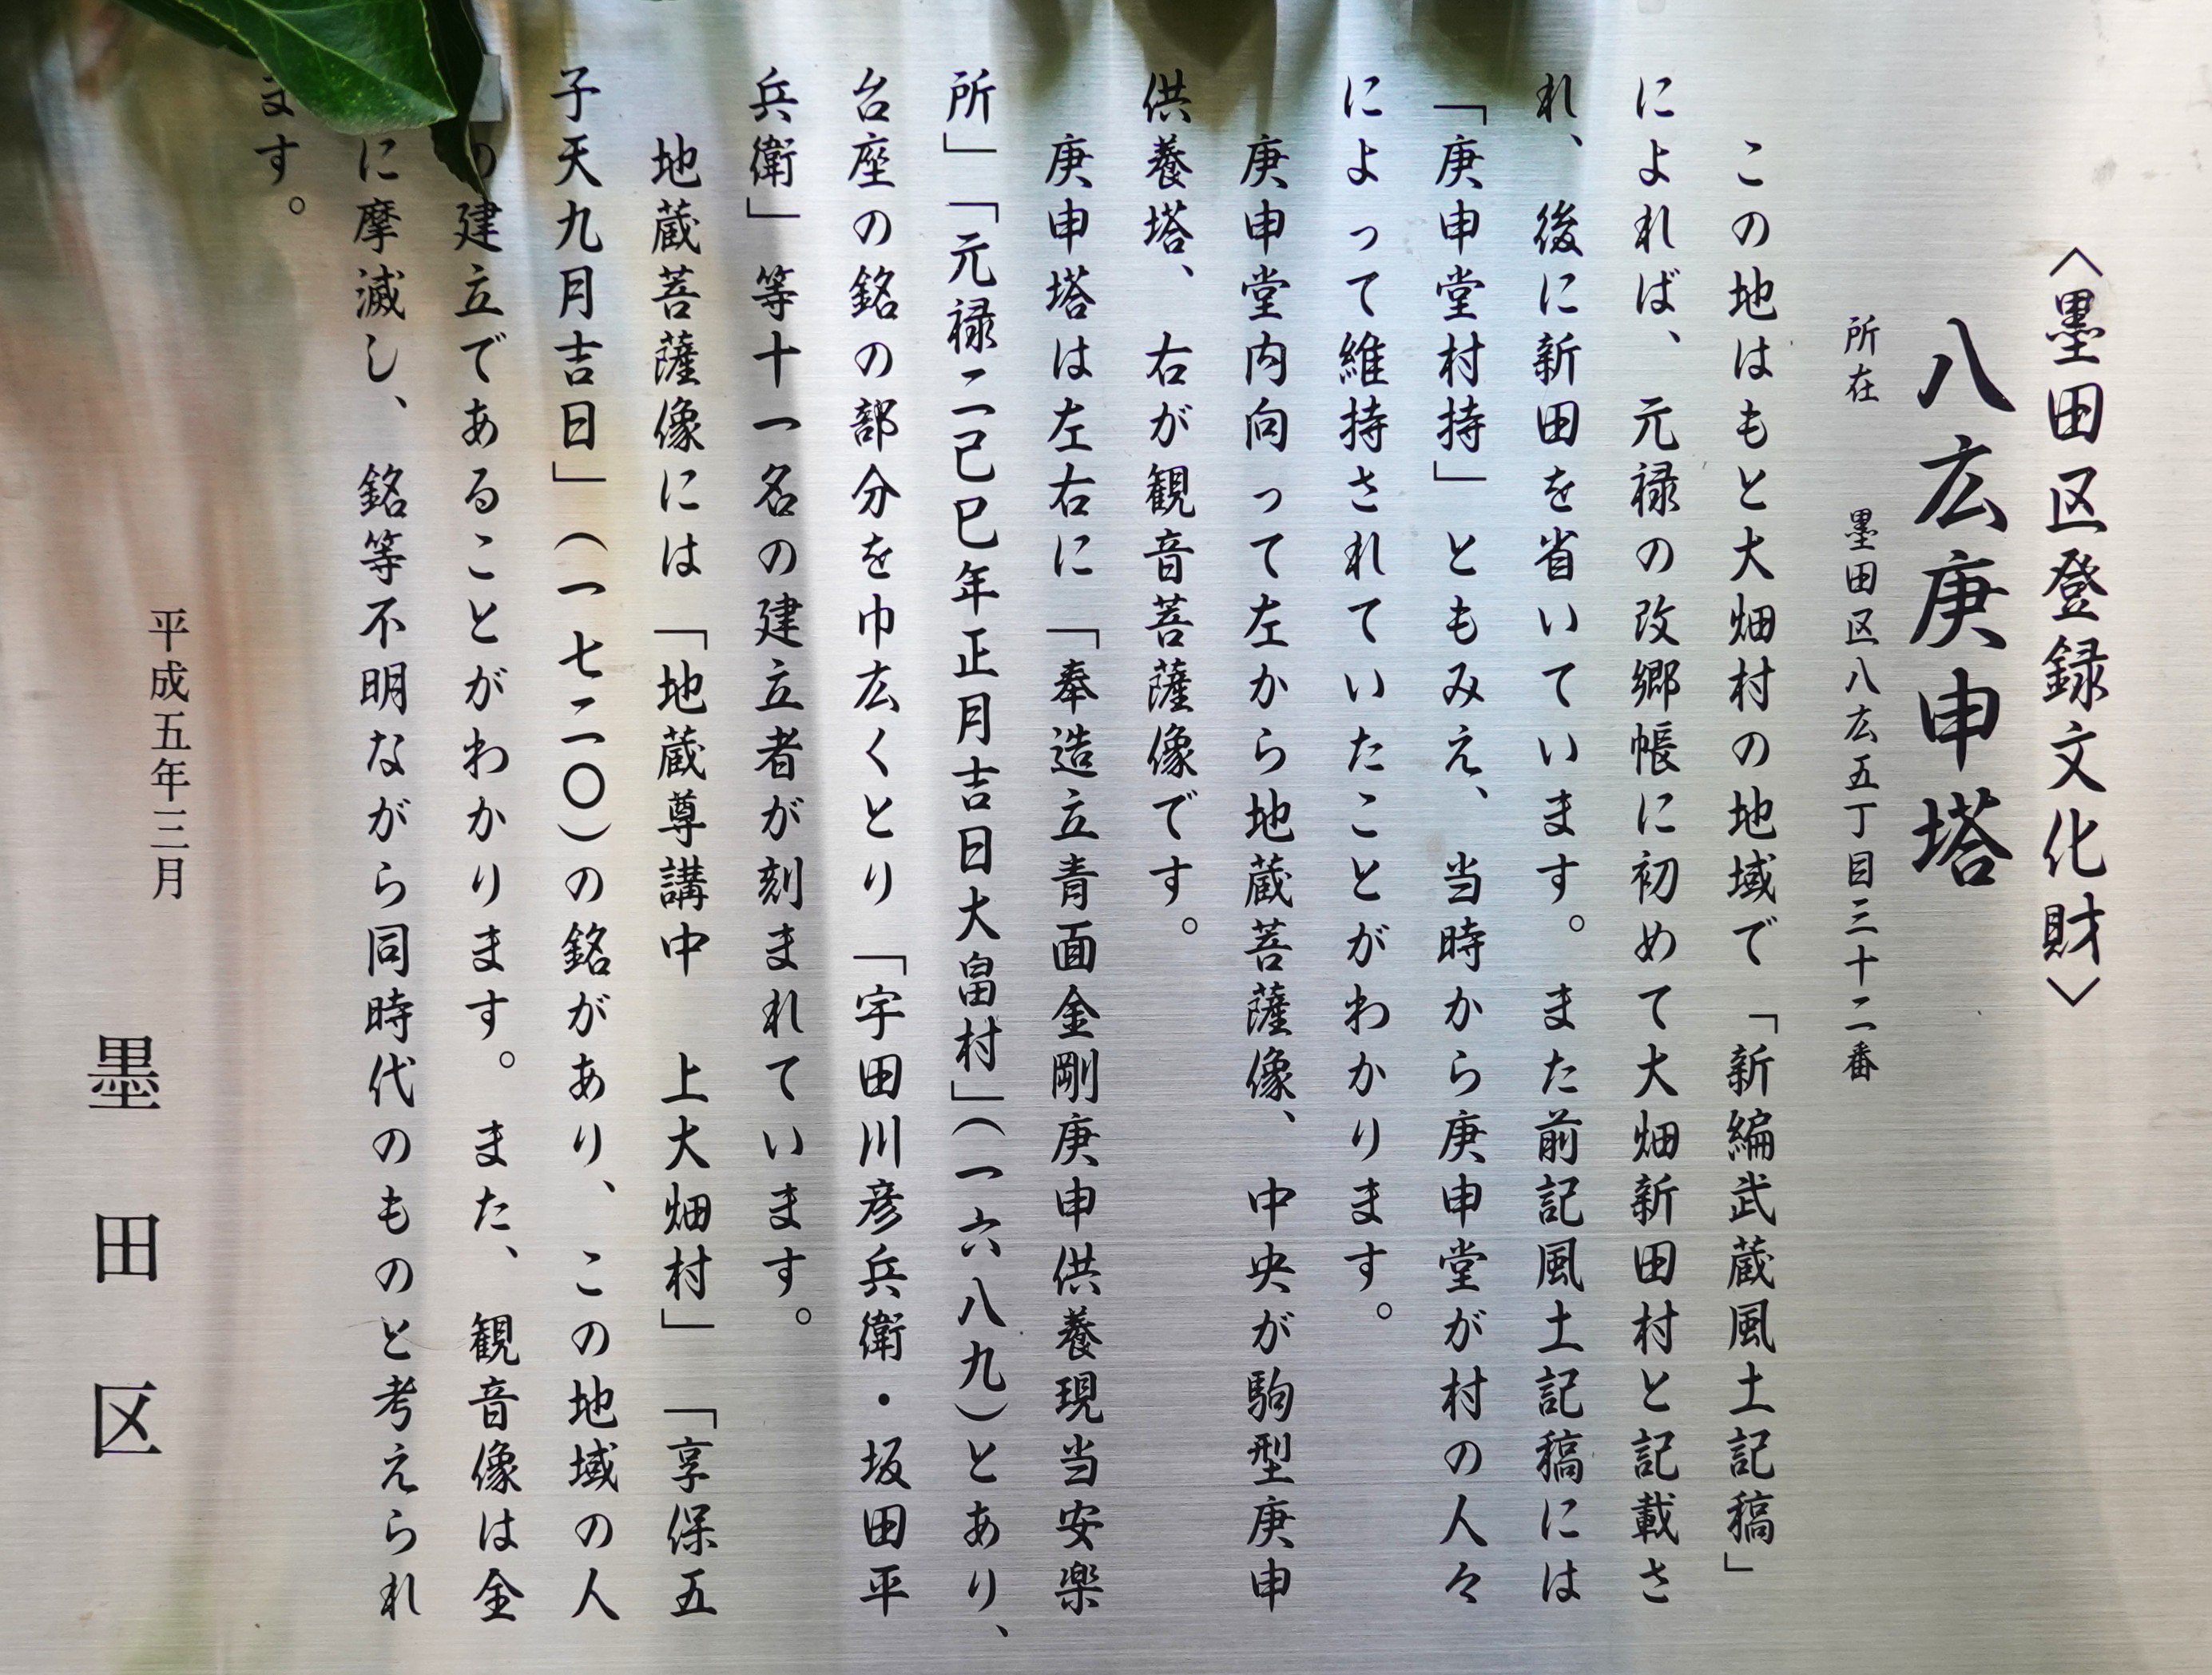 〈墨田区登録文化財〉
八広庚申塔
所在　墨田区八広五丁目三十二番
この地はもと大畑村の地域で「新編武蔵風土記稿」
によれば、元禄の改郷帳に初めて大畑新田村と記載さ
れ、後に新田を省いています。また前記風土記稿には
「庚申堂村持」ともみえ、当時から庚申堂が村の人々
によって維持されていたことがわかります。
庚申堂内向って左から地蔵菩薩像、中央が駒型庚申
供養塔、右が観音菩薩像です。
庚申塔は左右に「奉造立青面金剛庚申供養現当安楽
所」「元禄二己巳年正月吉日大畠村」（一六八九）とあり、
台座の銘の部分を巾広くとり「宇田川彦兵衛・坂田平
兵衛」等十一名の建立者が刻まれています。
地蔵菩薩像には「地蔵尊講中　上大畑村」「享保五
子天九月吉日」（一七二〇）の銘があり、この地域の人
の建立であることがわかります。また、観音像は全
に摩滅し、銘等不明ながら同時代のものと考えられ
ます。
平成五年三月
墨田区